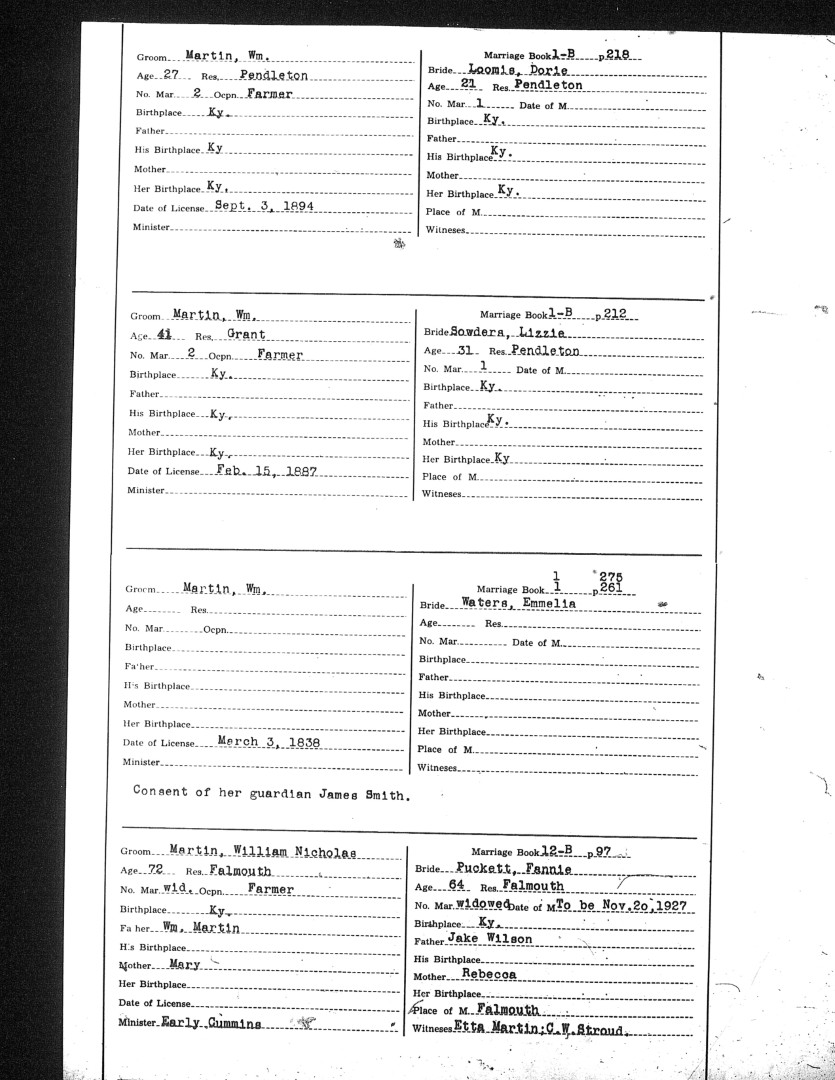 Groom Martin, Wm.
Age 27 Res. Pendleton
No. Mar. 2 Ocpn. Farmer
Birthplace Ky.
Father
His Birthplace Ky
Mother
Her Birthplace Ky.
Date of License Sept. 3, 1894
Minister
Marriage Book 1-B p. 218
Bride Loomis, Dorie
Age 21 Res. Pendleton
No. Mar. 1 Date of M.
Birthplace Ky.
Father
His Birthplace Ky.
Mother
Her Birthplace Ky.
Place of M.
Witnesses
Groom Martin, Wm.
Age 41 Res. Grant
No. Mar. 2 Ocpn. Farmer
Birthplace Ky.
Father
His Birthplace Ky.
Mother
Her Birthplace Ky.
Date of License Feb. 15, 1887
Minister
Marriage Book 1-B p. 212
Bride Sowdera, Lizzie
Age 31 Res. Pendleton
No. Mar. 1 Date of M.
Birthplace Ky.
Father
His Birthplace Ky.
Mother
Her Birthplace Ky
Place of M.
Witnesses
Groom Martin, Wm.
Age Res.
No. Mar. Ocpn.
Birthplace
Father
His Birthplace
Mother
Her Birthplace
Date of License March 3, 1838
Minister
1 275
Marriage Book 1 p. 261
Bride Waters, Emmelia
Age Res.
No. Mar. Date of M.
Birthplace
Father
His Birthplace
Mother
Her Birthplace
Place of M.
Witnesses
Consent of her guardian James Smith.
Groom Martin, William Nicholas
Age 72 Res. Falmouth
No. Mar. wid. Ocpn. Farmer
Birthplace Ky.
Father Wm. Martin
His Birthplace
Mother Mary
Her Birthplace
Date of License
Minister Early Cummins
Marriage Book 12-B p. 97
Bride Puckett, Fannie
Age 64 Res. Falmouth
No. Mar. widowed Date of M. To be Nov.20,1927
Birthplace Ky.
Father Jake Wilson
His Birthplace
Mother Rebecca
Her Birthplace
Place of M. Falmouth
Witnesses Etta Martin;C.W.Stroud.